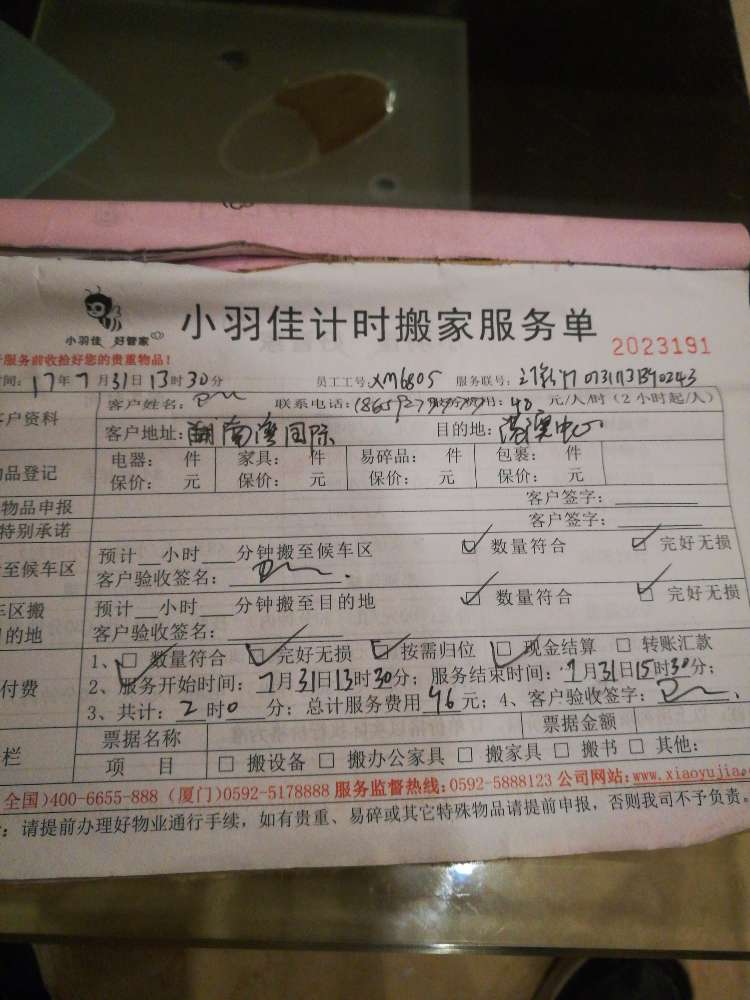 小羽佳 好管家
小羽佳计时搬家服务单
2023191
服务前收拾好您的贵重物品!
间: 17年7月31日13时30分 员工工号: XM6805 服务联号:
客户姓名: 联系电话: 用: 元/人/时 (2小时起/人)
户资料
客户地址: 南湾国际 目的地: 港澳中心
品登记 电器: 件 家具: 件 易碎品: 件 包裹: 件
保价: 元 保价: 元 保价: 元 保价: 元
物品申报 客户签字:
特别承诺 客户签字:
至候车区 预计__小时___分钟搬至候车区 数量符合 完好无损
客户验收签名:
车区搬 预计__小时___分钟搬至目的地 数量符合 完好无损
的地 客户验收签名:
1、 数量符合 完好无损 按需归位 现金结算 转账汇款
付费 2、服务开始时间: 7月31日13时30分; 服务结束时间: 7月31日15时30分;
3、共计: 2时0分; 总计服务费用 元; 4、客户验收签字:
栏 票据名称 票据金额
项 目 搬设备 搬办公家具 搬家具 搬书 其他:
全国)400-6655-888 (厦门)0592-5178888 服务监督热线:0592-5888123 公司网站:www.xiaoyujia.
: 请提前办理好物业通行手续, 如有贵重、易碎或其它特殊物品请提前申报, 否则我司不予负责。